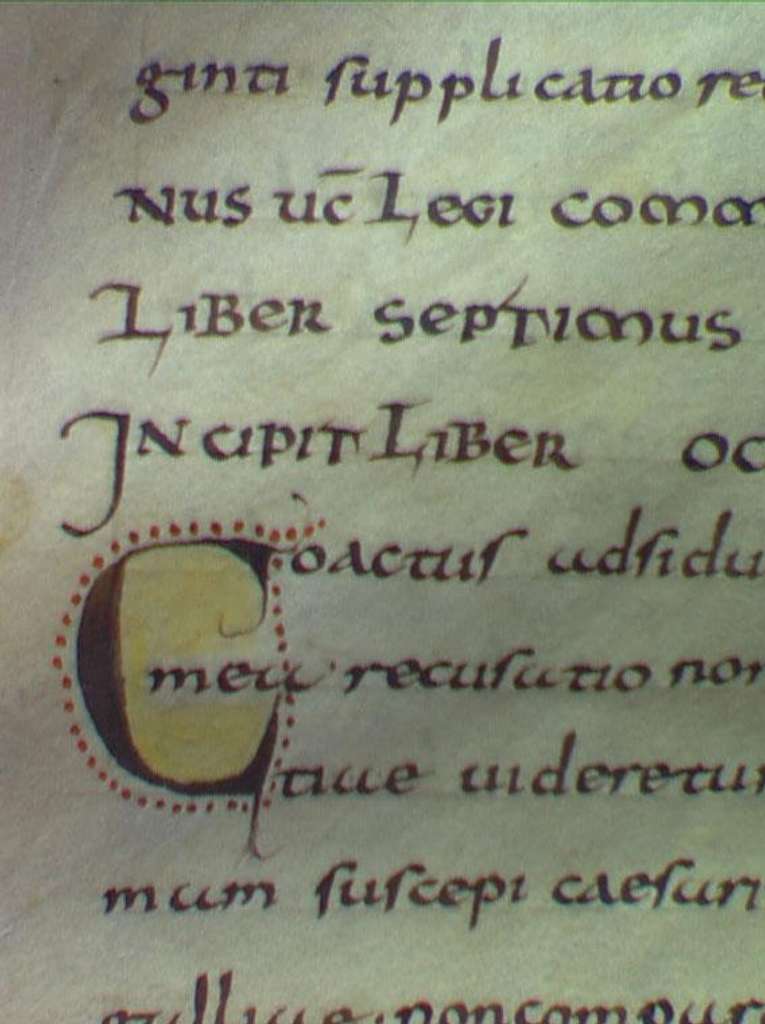 ginti supplicatio re
NUS uc̄ Legi comm
LIBER SEPTIMUS
INCIPIT LIBER OC
Coactus adsidu
mea recusatio non
tatiue uideretur
mum suscepi caesari
galliae non compar